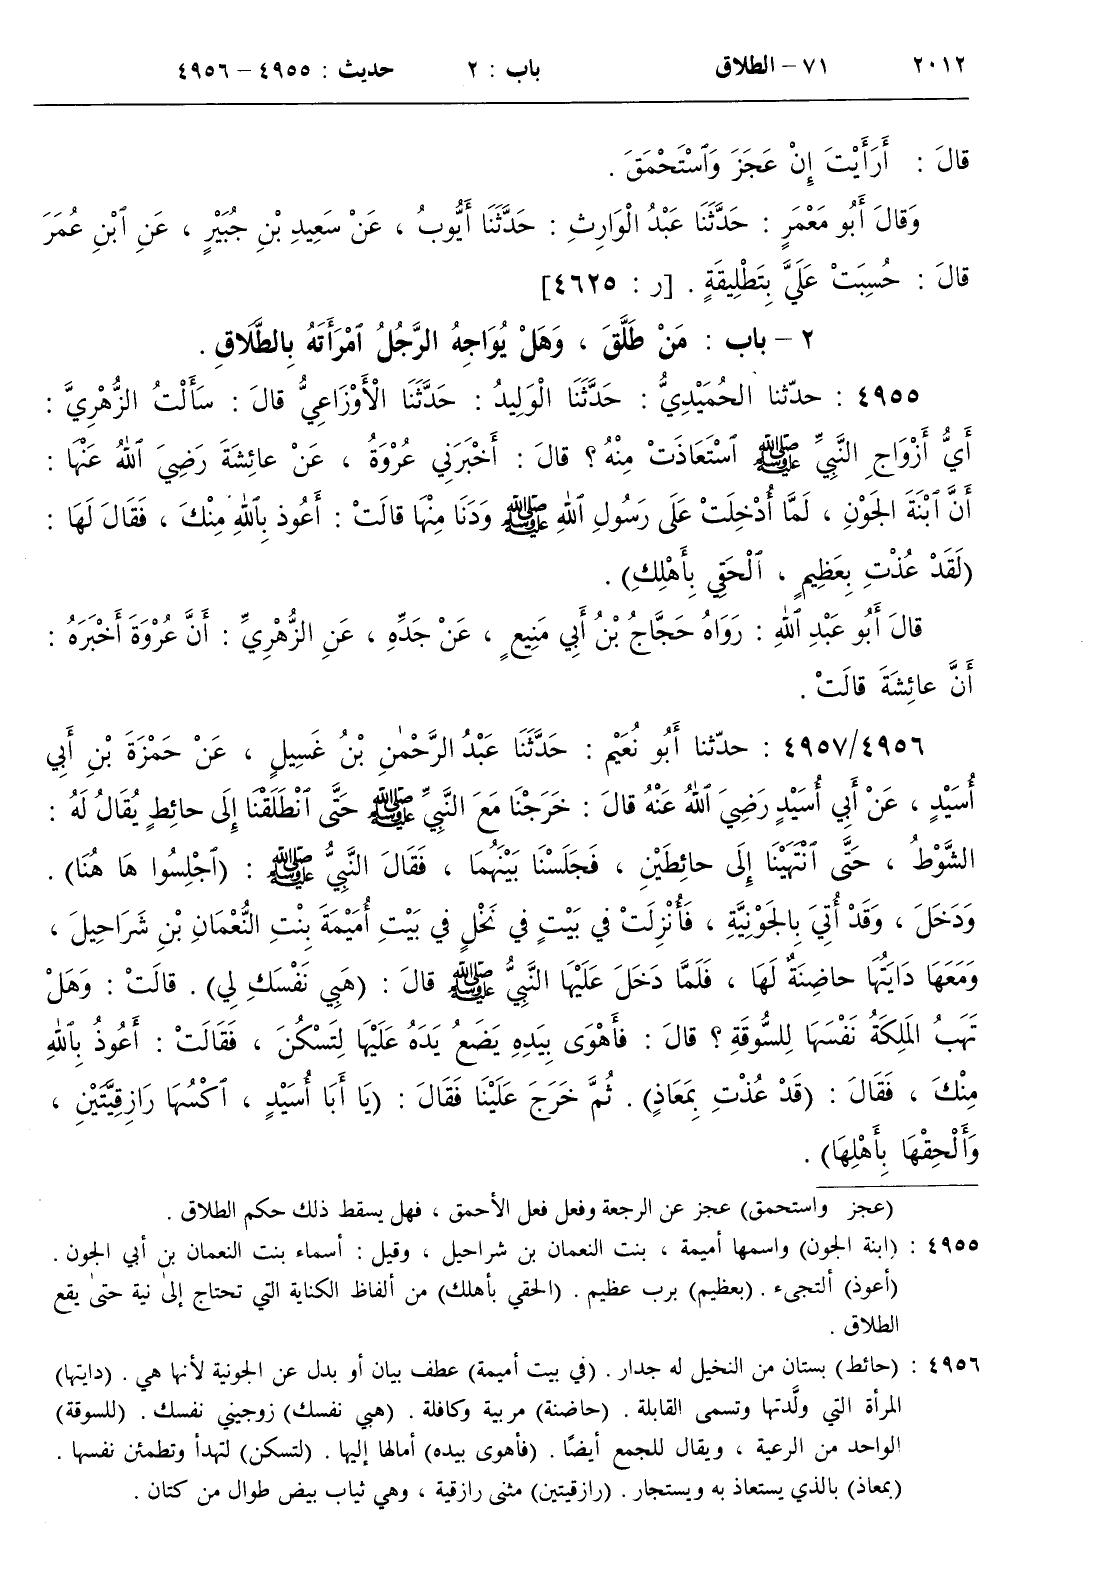 ٢٠١٢ ٧١ – الطلاق باب : ٢ حديث : ٤٩٥٥ – ٤٩٥٦
قالَ : أَرَأَيْتَ إِنْ عَجَزَ وَٱسْتَحْمَقَ .
وَقالَ أَبُو مَعْمَرٍ : حَدَّثَنَا عَبْدُ الْوَارِثِ : حَدَّثَنَا أَيُّوبُ ، عَنْ سَعِيدِ بْنِ جُبَيْرٍ ، عَنِ ٱبْنِ عُمَرَ
قالَ : حُسِبَتْ عَلَيَّ بِتَطْلِيقَةٍ . [ر : ٤٦٢٥]
٢ – باب : مَنْ طَلَّقَ ، وَهَلْ يُوَاجِهُ الرَّجُلُ ٱمْرَأَتَهُ بِالطَّلَاقِ .
٤٩٥٥ : حدّثنا الحُمَيْدِيُّ : حَدَّثَنَا الْوَلِيدُ : حَدَّثَنَا الْأَوْزَاعِيُّ قالَ : سَأَلْتُ الزُّهْرِيَّ :
أَيُّ أَزْوَاجِ النَّبِيِّ ﷺ ٱسْتَعَاذَتْ مِنْهُ ؟ قالَ : أَخْبَرَنِي عُرْوَةُ ، عَنْ عائِشَةَ رَضِيَ ٱللهُ عَنْهَا :
أَنَّ ٱبْنَةَ الجَوْنِ ، لَمَّا أُدْخِلَتْ عَلَى رَسُولِ ٱللهِ ﷺ وَدَنَا مِنْهَا قالَتْ : أَعُوذ بِٱللهِ مِنْكَ ، فَقَالَ لَهَا :
(لَقَدْ عُذْتِ بِعَظِيمٍ ، ٱلْحَقِي بِأَهْلِكِ) .
قالَ أَبُو عَبْدِ ٱللهِ : رَوَاهُ حَجَّاجُ بْنُ أَبِي مَنِيعٍ ، عَنْ جَدِّهِ ، عَنِ الزُّهْرِيِّ : أَنَّ عُرْوَةَ أَخْبَرَهُ :
أَنَّ عائِشَةَ قالَتْ .
٤٩٥٧/٤٩٥٦ : حدّثنا أَبُو نُعَيْم : حَدَّثَنَا عَبْدُ الرَّحْمٰنِ بْنُ غَسِيلٍ ، عَنْ حَمْزَةَ بْنِ أَبِي
أُسَيْدٍ ، عَنْ أَبِي أُسَيْدٍ رَضِيَ ٱللهُ عَنْهُ قالَ : خَرَجْنَا مَعَ النَّبِيِّ ﷺ حَتَّى ٱنْطَلَقْنَا إِلَى حائِطٍ يُقَالُ لَهُ :
الشَّوْطُ ، حَتَّى ٱنْتَهَيْنَا إِلَى حائِطَيْنِ ، فَجَلَسْنَا بَيْنَهُما ، فَقَالَ النَّبِيُّ ﷺ : (ٱجْلِسُوا هَا هُنَا) .
وَدَخَلَ ، وَقَدْ أُتِيَ بِالجَوْنِيَّةِ ، فَأُنْزِلَتْ في بَيْتٍ في نَخْلٍ في بَيْتِ أُمَيْمَةَ بِنْتِ النُّعْمَانِ بْنِ شَرَاحِيلَ ،
وَمَعَهَا دَايَتُهَا حاضِنَةٌ لَهَا ، فَلَمَّا دَخَلَ عَلَيْهَا النَّبِيُّ ﷺ قالَ : (هَبِي نَفْسَكِ لِي) . قالَتْ : وَهَلْ
تَهَبُ المَلِكَةُ نَفْسَهَا لِلسُّوقَةِ ؟ قالَ : فَأَهْوَى بِيَدِهِ يَضَعُ يَدَهُ عَلَيْهَا لِتَسْكُنَ ، فَقَالَتْ : أَعُوذُ بِٱللهِ
مِنْكَ ، فَقَالَ : (قَدْ عُذْتِ بِمَعَاذٍ) . ثُمَّ خَرَجَ عَلَيْنَا فَقَالَ : (يَا أَبَا أُسَيْدٍ ، ٱكْسُهَا رَازِقِيَّتَيْنِ ،
وَأَلْحِقْهَا بِأَهْلِهَا) .
(عجز واستحمق) عجز عن الرجعة وفعل فعل الأحمق ، فهل يسقط ذلك حكم الطلاق .
٤٩٥٥ : (ابنة الجون) واسمها أميمة ، بنت النعمان بن شراحيل ، وقيل : أسماء بنت النعمان بن أبي الجون .
(أعوذ) ألتجىء . (بعظيم) برب عظيم . (الحقي بأهلك) من ألفاظ الكناية التي تحتاج إلىٰ نية حتىٰ يقع
الطلاق .
٤٩٥٦ : (حائط) بستان من النخيل له جدار . (في بيت أميمة) عطف بيان أو بدل عن الجونية لأنها هي . (دايتها)
المرأة التي ولَّدتها وتسمى القابلة . (حاضنة) مربية وكافلة . (هبي نفسك) زوجيني نفسك . (للسوقة)
الواحد من الرعية ، ويقال للجمع أيضًا . (فأهوى بيده) أمالها إليها . (لتسكن) لتهدأ وتطمئن نفسها .
(بمعاذ) بالذي يستعاذ به ويستجار . (رازقيتين) مثنى رازقية ، وهي ثياب بيض طوال من كتان .